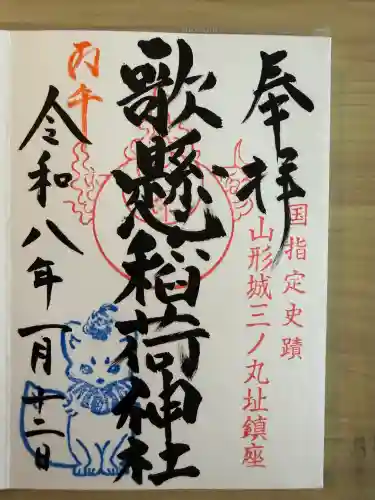 奉拝
国指定史蹟
山形城三ノ丸址鎮座
歌懸稲荷神社
丙午
令和八年一月十二日